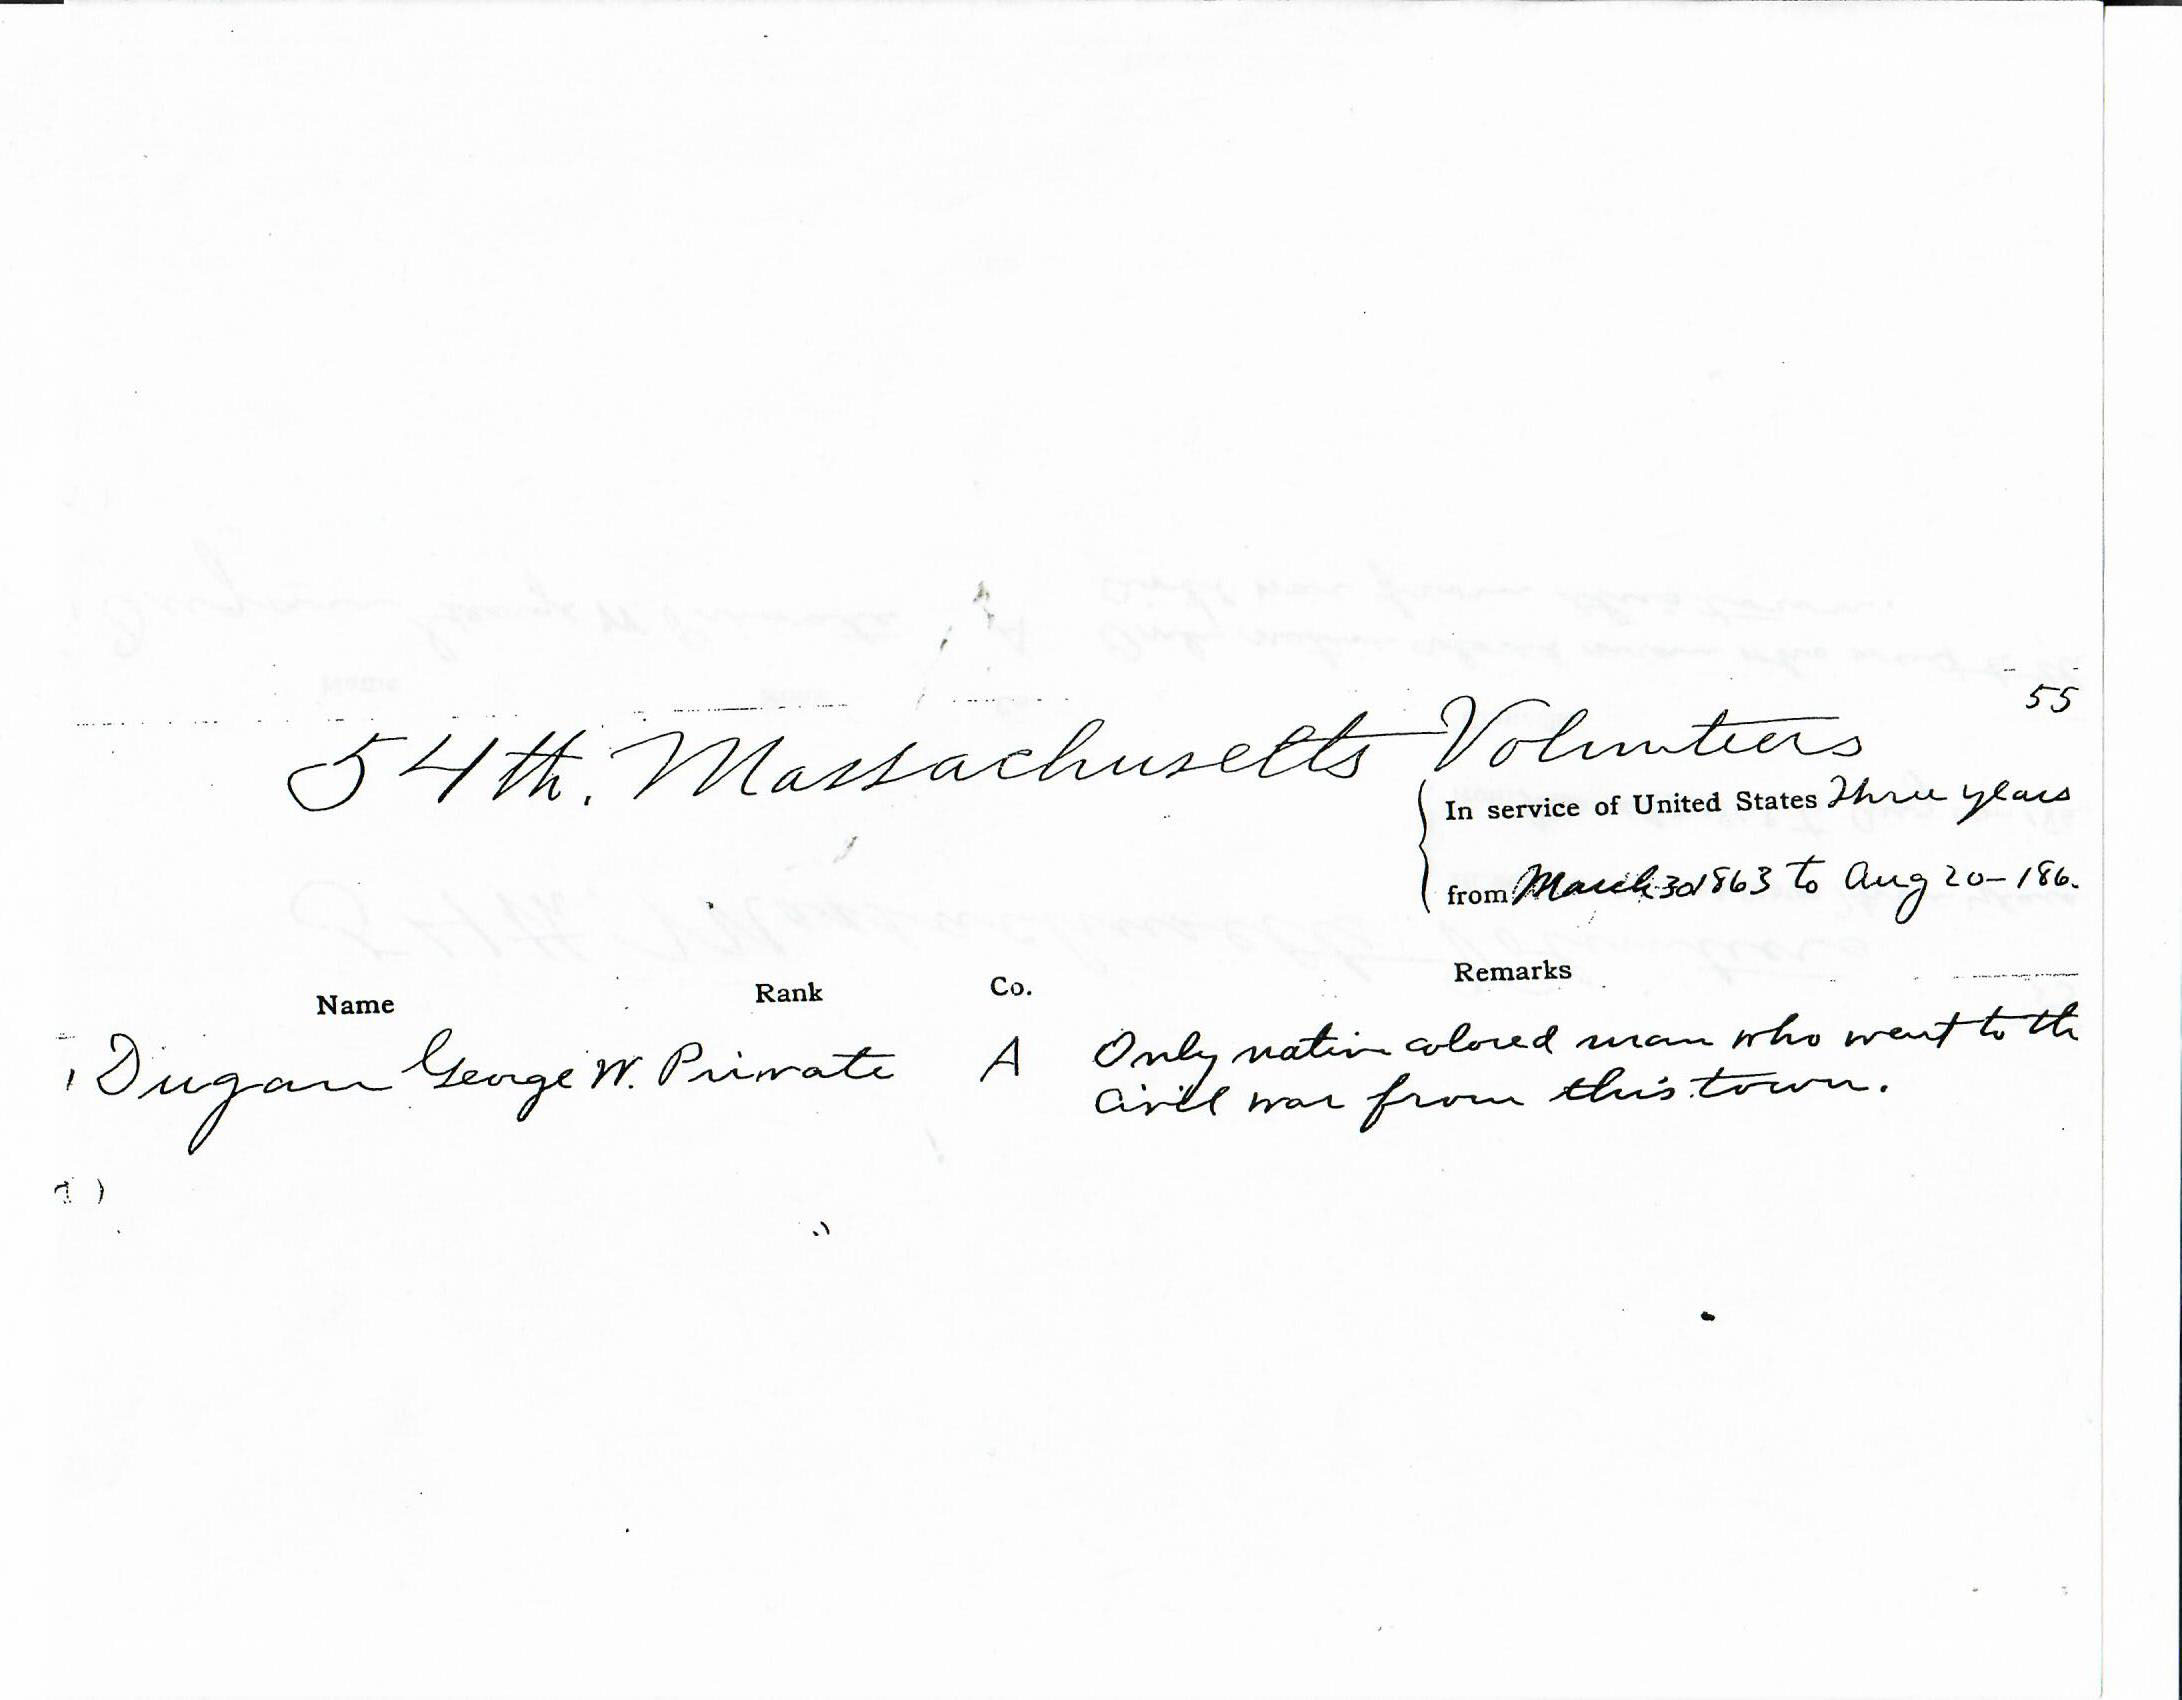 55
54th. Massachusetts Volunteers
In service of United States Three years
from March 30 1863 to Aug 20-186.
Name Rank Co. Remarks
1 Dugan George W. Private A Only native colored man who went to th
Civil war from this town.